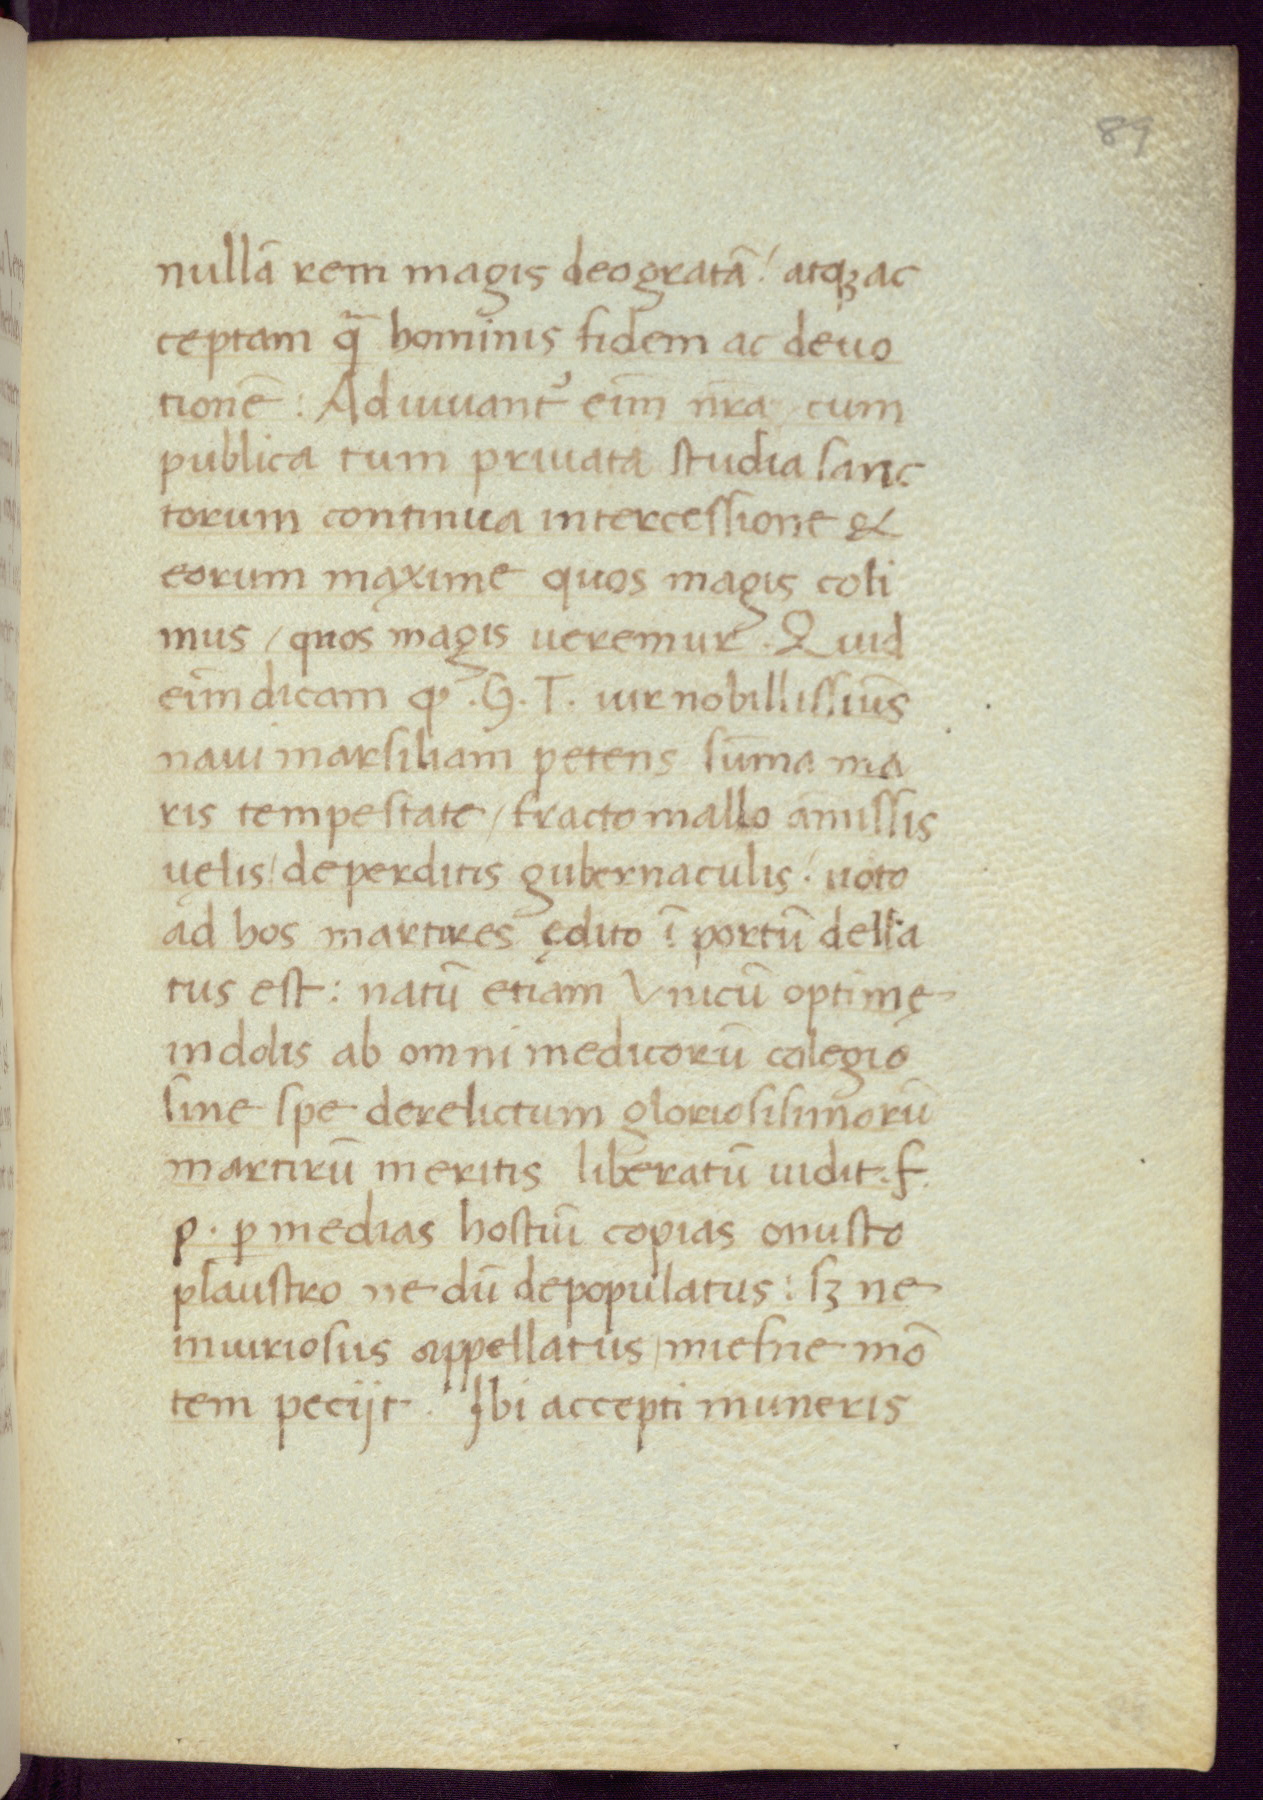 89
nullā rem magis deogratā / atqꝫ ac
ceptam q̄ hominis fidem ac deuo
tionē : Adiuuant᷑ eim̄ nr̄a cum
publica tum priuata studia sanc
torum continua intercessione &
eorum maxime quos magis coli
mus / quos magis ueremur . Quid
eim̄ dicam ꝙ . G . T . uir nobillissiūs
naui marsiliam petens sum̄a ma
ris tempestate / fracto mallo amissis
uęlis / deperditis gubernaculis / uoto
ad hos martires ędito ī portū della
tus est : natū etiam Vnicū optimę
indolis ab omni medicorū colegio
sine spe derelictum gloriosisimorū
martirū meritis liberatū uidit . f .
p . ꝑ medias hostiū copias onusto
plaustro ne dū depopulatus : sꝫ ne
iniuriosus appellatus / miefne mō
tem peciit . Ibi accepti muneris